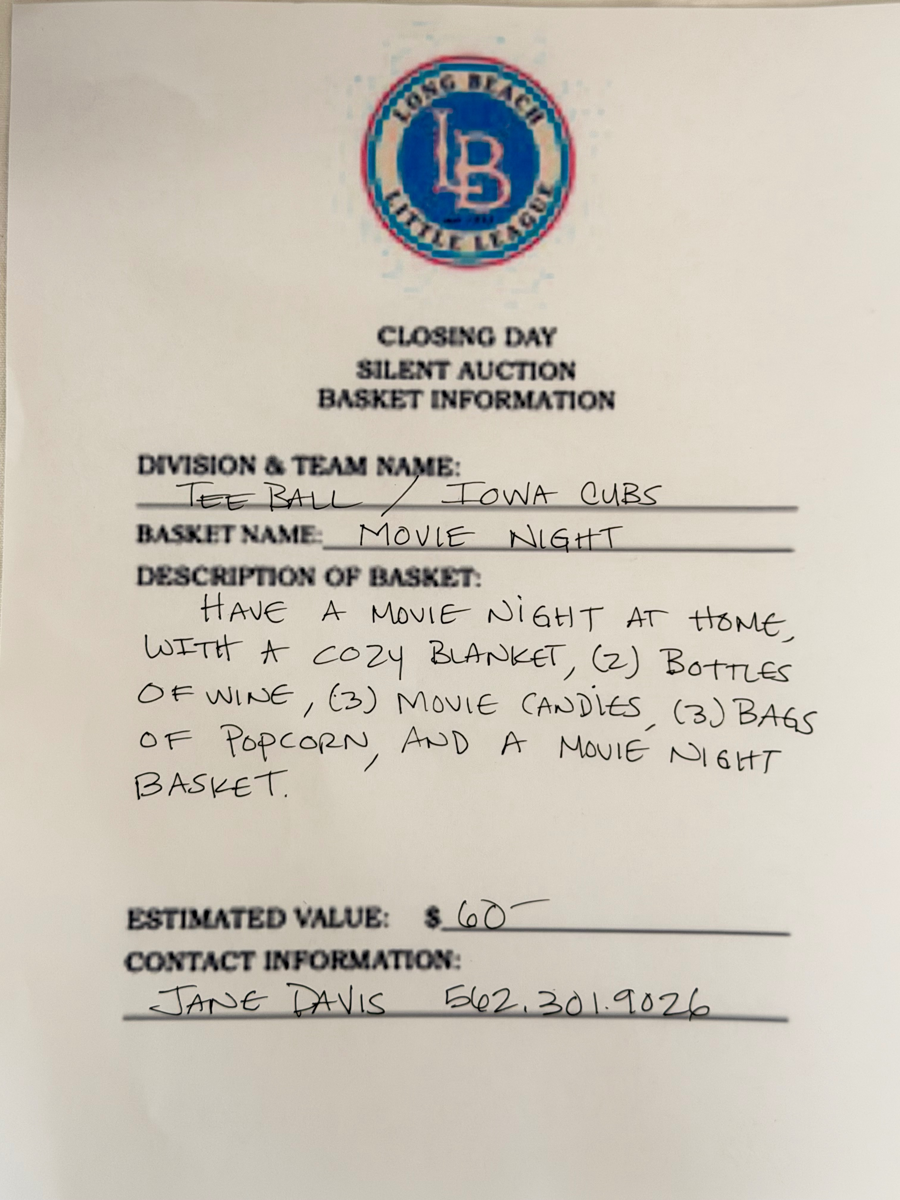 LONG BEACH
LB
LITTLE LEAGUE
CLOSING DAY
SILENT AUCTION
BASKET INFORMATION
DIVISION & TEAM NAME:
TEE BALL / IOWA CUBS
BASKET NAME: MOVIE NIGHT
DESCRIPTION OF BASKET:
HAVE A MOVIE NIGHT AT HOME,
WITH A COZY BLANKET, (2) BOTTLES
OF WINE, (3) MOVIE CANDIES, (3) BAGS
OF POPCORN, AND A MOVIE NIGHT
BASKET.
ESTIMATED VALUE: $ 60—
CONTACT INFORMATION:
JANE DAVIS 562.301.9026